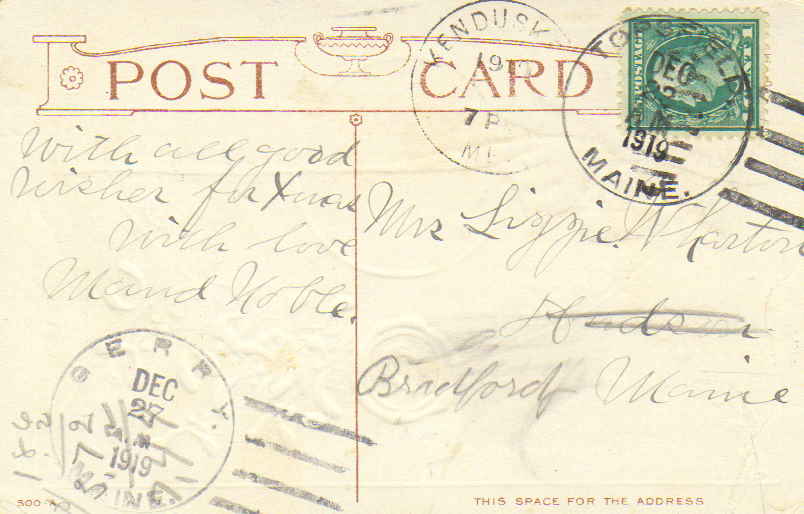 POST CARD
KENDUSK
19
7 P
ME.
DEC
22
1919
MAINE.
1919
U.S. POSTAGE
With all good
wishes for Xmas
With love
Maud Noble.
Mrs Lizzie Wharton
Hudson
Bradford Maine
GERRY.
DEC
27
A.M
1919
MAINE.
500
THIS SPACE FOR THE ADDRESS